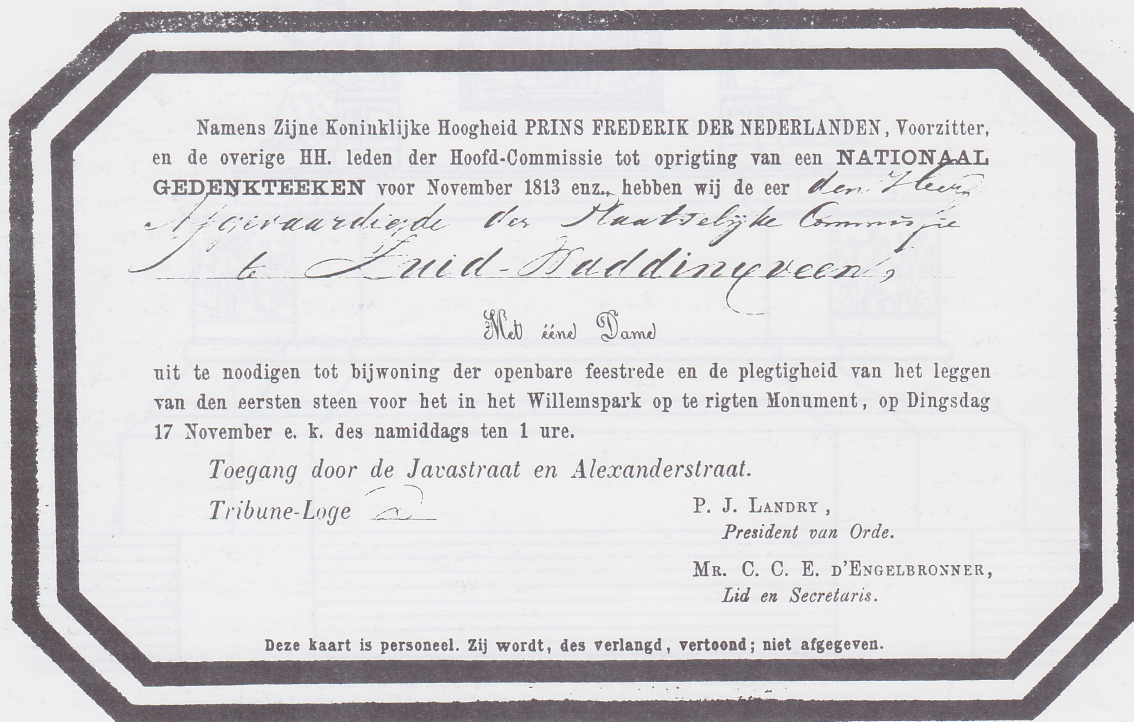 Namens Zijne Koninklijke Hoogheid PRINS FREDERIK DER NEDERLANDEN, Voorzitter,
en de overige HH. leden der Hoofd-Commissie tot oprigting van een NATIONAAL
GEDENKTEEKEN voor November 1813 enz., hebben wij de eer den Heer
Afgevaardigde der Plaatselijke Commissie
te Zuid-Waddingveen,
Met ééne Dame
uit te noodigen tot bijwoning der openbare feestrede en de plegtigheid van het leggen
van den eersten steen voor het in het Willemspark op te rigten Monument, op Dingsdag
17 November e. k. des namiddags ten 1 ure.
Toegang door de Javastraat en Alexanderstraat.
Tribune-Loge
P. J. LANDRY,
President van Orde.
MR. C. C. E. D'ENGELBRONNER,
Lid en Secretaris.
Deze kaart is personeel. Zij wordt, des verlangd, vertoond; niet afgegeven.